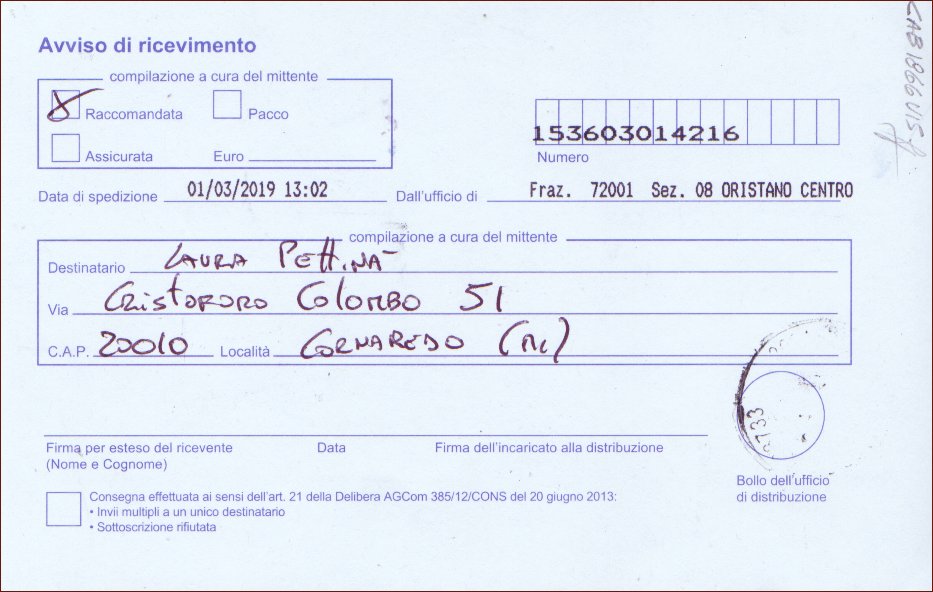 Avviso di ricevimento
compilazione a cura del mittente
Raccomandata Pacco
Assicurata Euro
153603014216
Numero
Data di spedizione 01/03/2019 13:02 Dall'ufficio di Fraz. 72001 Sez. 08 ORISTANO CENTRO
compilazione a cura del mittente
Destinatario LAURA PETTINA'
Via CRISTOFORO COLOMBO 51
C.A.P. 20010 Località CORNAREDO (MI)
Firma per esteso del ricevente Data Firma dell'incaricato alla distribuzione
(Nome e Cognome)
Bollo dell'ufficio
di distribuzione
Consegna effettuata ai sensi dell'art. 21 della Delibera AGCom 385/12/CONS del 20 giugno 2013:
• Invii multipli a un unico destinatario
• Sottoscrizione rifiutata